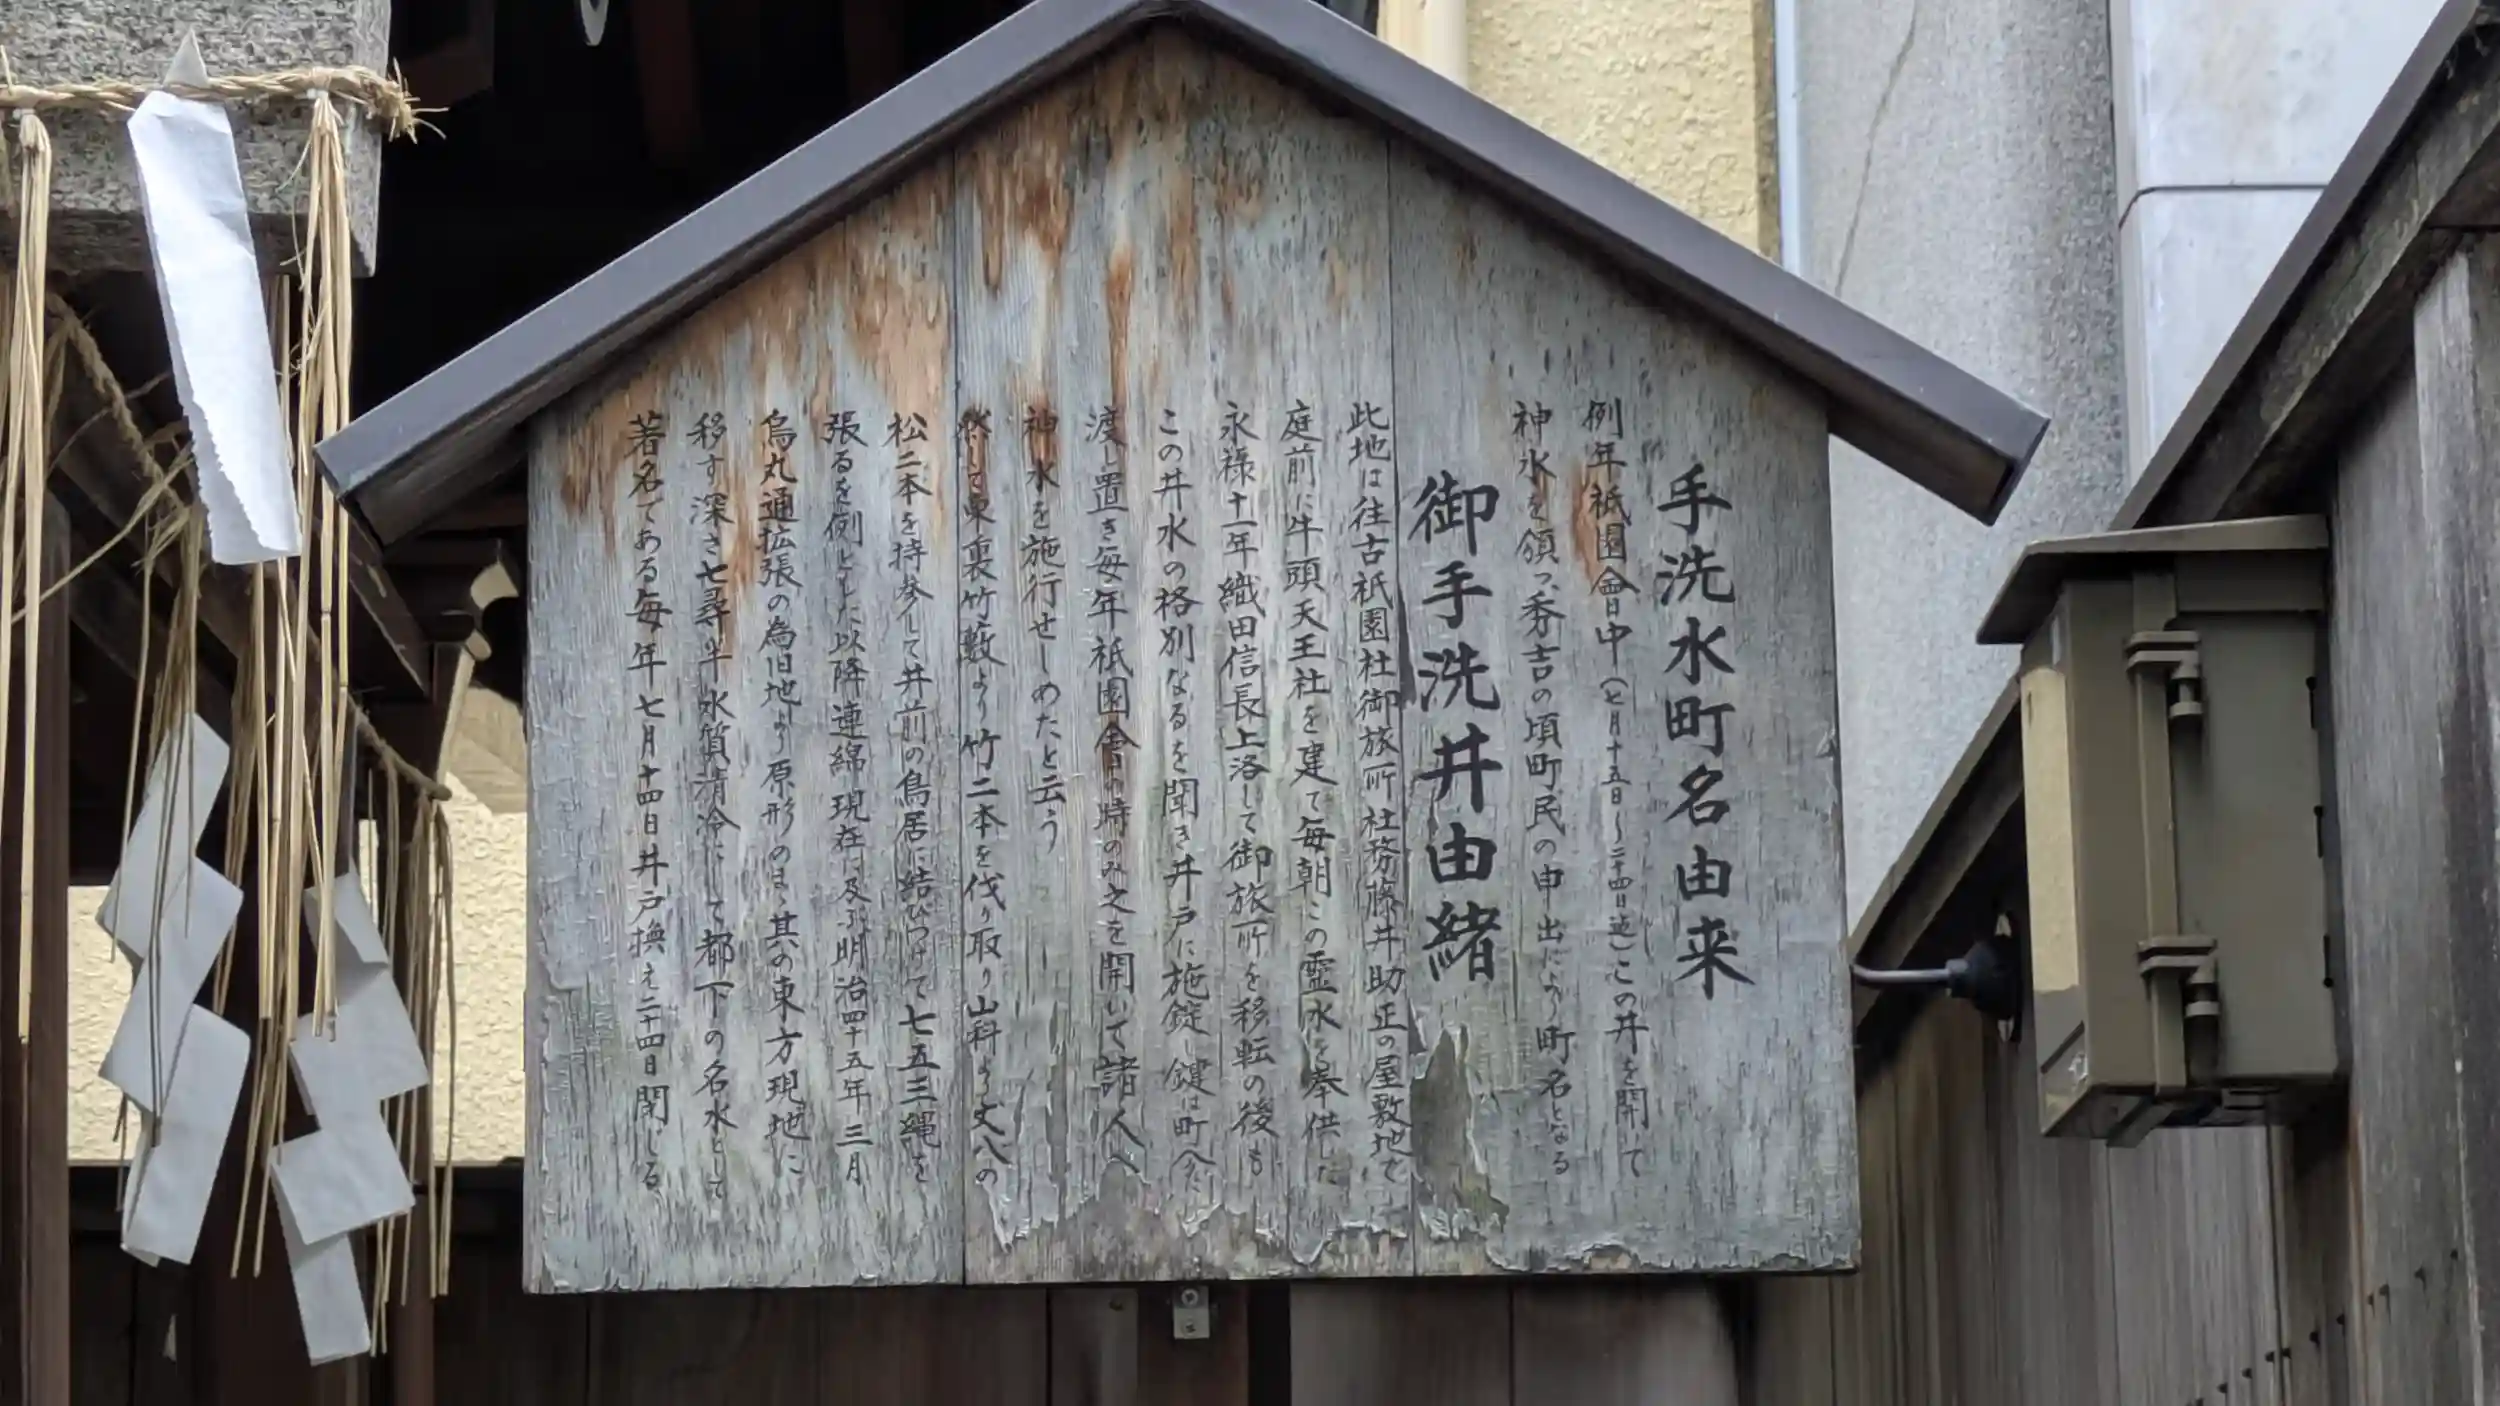 手洗水町名由来
例年祇園会日中(七月十五日〜二十四日迄)この井を開いて
神水を領つ秀吉の頃町民の申出により町名となる
御手洗井由緒
此地は往古祇園社御旅所社務藤井助正の屋敷地で
庭前に牛頭天王社を建て毎朝この霊水を奉供した
永禄十一年織田信長上洛して御旅所を移転の後も
この井水の格別なるを聞き井戸に施錠し鍵は町
渡し置き毎年祇園会の時のみ之を開いて諸人へ
神水を施行せしめたと云う
然して東裏竹藪より竹二本を伐り取り山科より丈八の
松二本を持参して井前の鳥居に結びつけて七五三縄を
張るを例とした以降連綿現在に及ぶ明治四十五年三月
烏丸通拡張の為旧地より原形のまゝ其の東方現地に
移す深さ七尋半水質清冷にして都下の名水として
著名である毎年七月十四日井戸換え二十四日閉じる